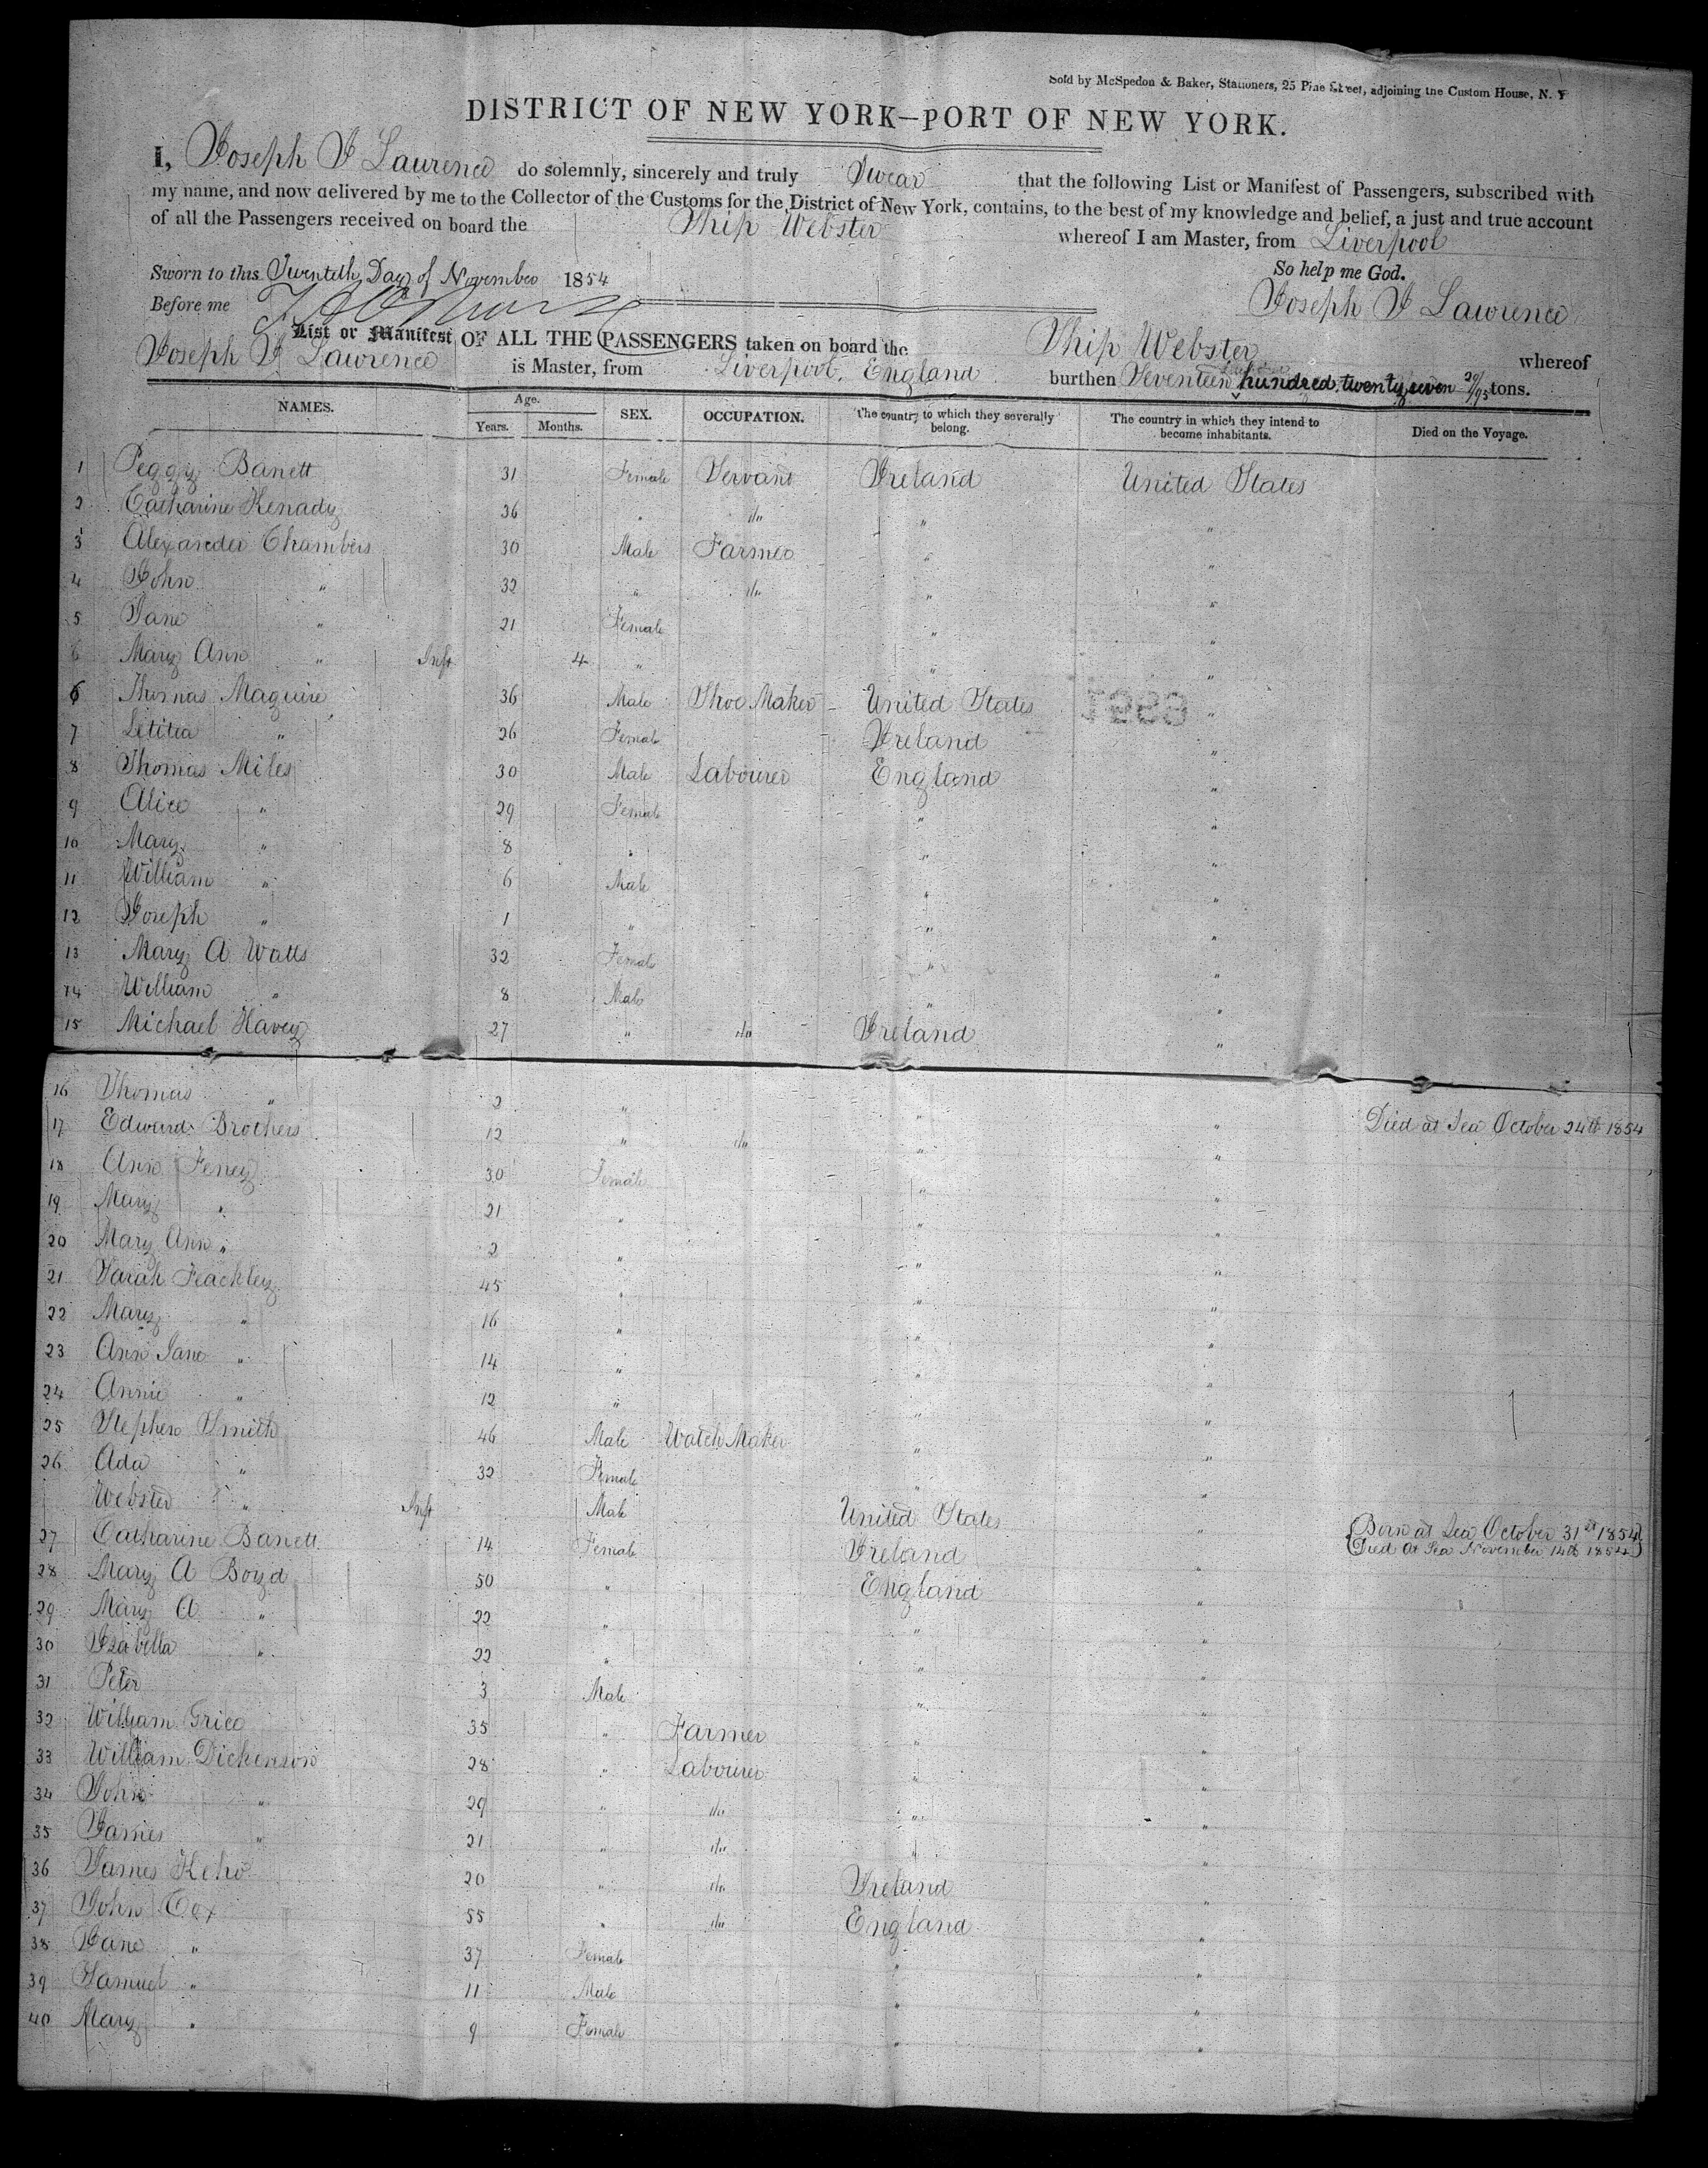 Sold by McSpedon & Baker, Stationers, 25 Pine Street, adjoining the Custom House, N. Y
DISTRICT OF NEW YORK—PORT OF NEW YORK.
I, Joseph J Lawrence do solemnly, sincerely and truly Swear that the following List or Manifest of Passengers, subscribed with
my name, and now delivered by me to the Collector of the Customs for the District of New York, contains, to the best of my knowledge and belief, a just and true account
of all the Passengers received on board the Ship Webster whereof I am Master, from Liverpool
So help me God.
Sworn to this Twentieth Day of November 1854
Joseph J Lawrence
Before me
List or Manifest OF ALL THE PASSENGERS taken on board the Ship Webster whereof
Joseph J Lawrence is Master, from Liverpool, England burthen Seventeen hundred twenty seven tons.
NAMES. Age. Years. Months. SEX. OCCUPATION. The country to which they severally belong. The country in which they intend to become inhabitants. Died on the Voyage.
1 Peggy Barrett 31 Female Servant Ireland United States
2 Catharine Kenady 36 " do " "
3 Alexander Chambers 30 Male Farmer " "
4 John " 32 " do " "
5 Jane " 21 Female " "
6 Mary Ann " Inft 4 " " "
6 Thomas Maguire 36 Male Shoe Maker United States "
7 Letitia " 26 Female Ireland "
8 Thomas Miles 30 Male Labourer England "
9 Alice " 29 Female " "
10 Mary " 8 " " "
11 William " 6 Male " "
12 Joseph " 1 " " "
13 Mary A Watts 32 Female " "
14 William " 8 Male " "
15 Michael Havey 27 " do Ireland "
16 Thomas " 2 " " "
17 Edward Brothers 12 " do " " Died at Sea October 24th 1854
18 Ann Feney 30 Female " "
19 Mary " 21 " " "
20 Mary Ann " 2 " " "
21 Sarah Feackley 45 " " "
22 Mary " 16 " " "
23 Ann Jane " 14 " " "
24 Annie " 12 " " "
25 Stephen Smith 46 Male Watch Maker " "
26 Ada " 32 Female " "
Webster " Inft Male United States " Born at Sea October 31st 1854
Died at Sea November 14th 1854
27 Catharine Barrett 14 Female Ireland "
28 Mary A Boyd 50 " England "
29 Mary A " 22 " " "
30 Isabella " 22 " " "
31 Peter 3 Male " "
32 William Grice 35 " Farmer " "
33 William Dickenson 28 " Labourer " "
34 John " 29 " do " "
35 James " 21 " do " "
36 James Keho 20 " do Ireland "
37 John Cox 55 " do England "
38 Jane " 37 Female " "
39 Samuel " 11 Male " "
40 Mary " 9 Female " "